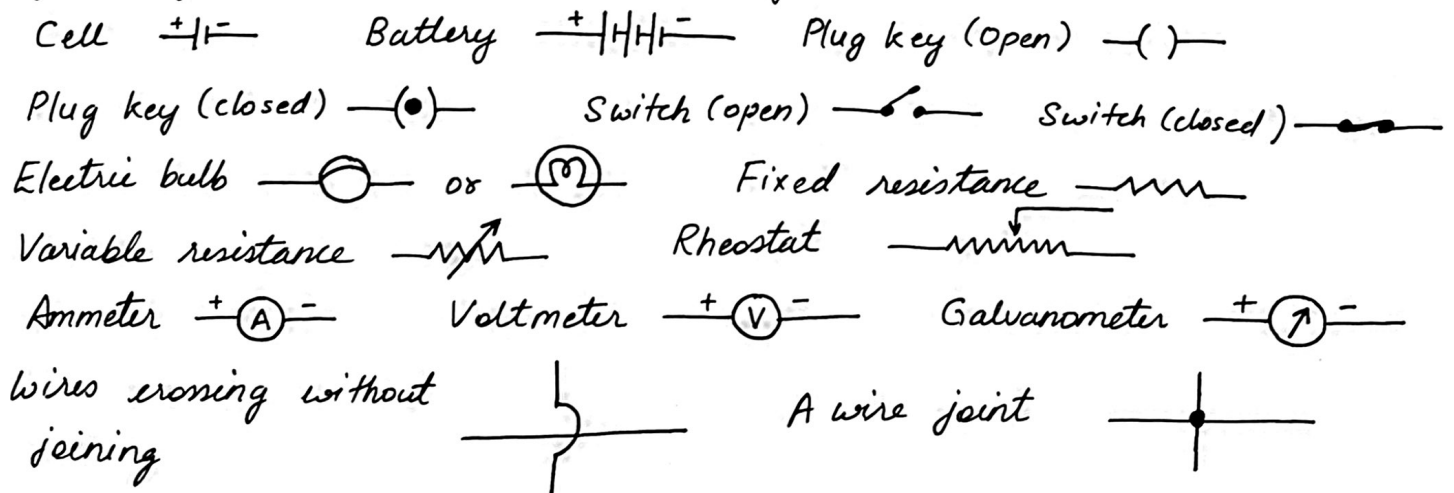 Cell + - Battery + - Plug key (open)
Plug key (closed) Switch (open) Switch (closed)
Electric bulb or Fixed resistance
Variable resistance Rheostat
Ammeter + A - Voltmeter + V - Galvanometer + -
Wires crossing without A wire joint
joining